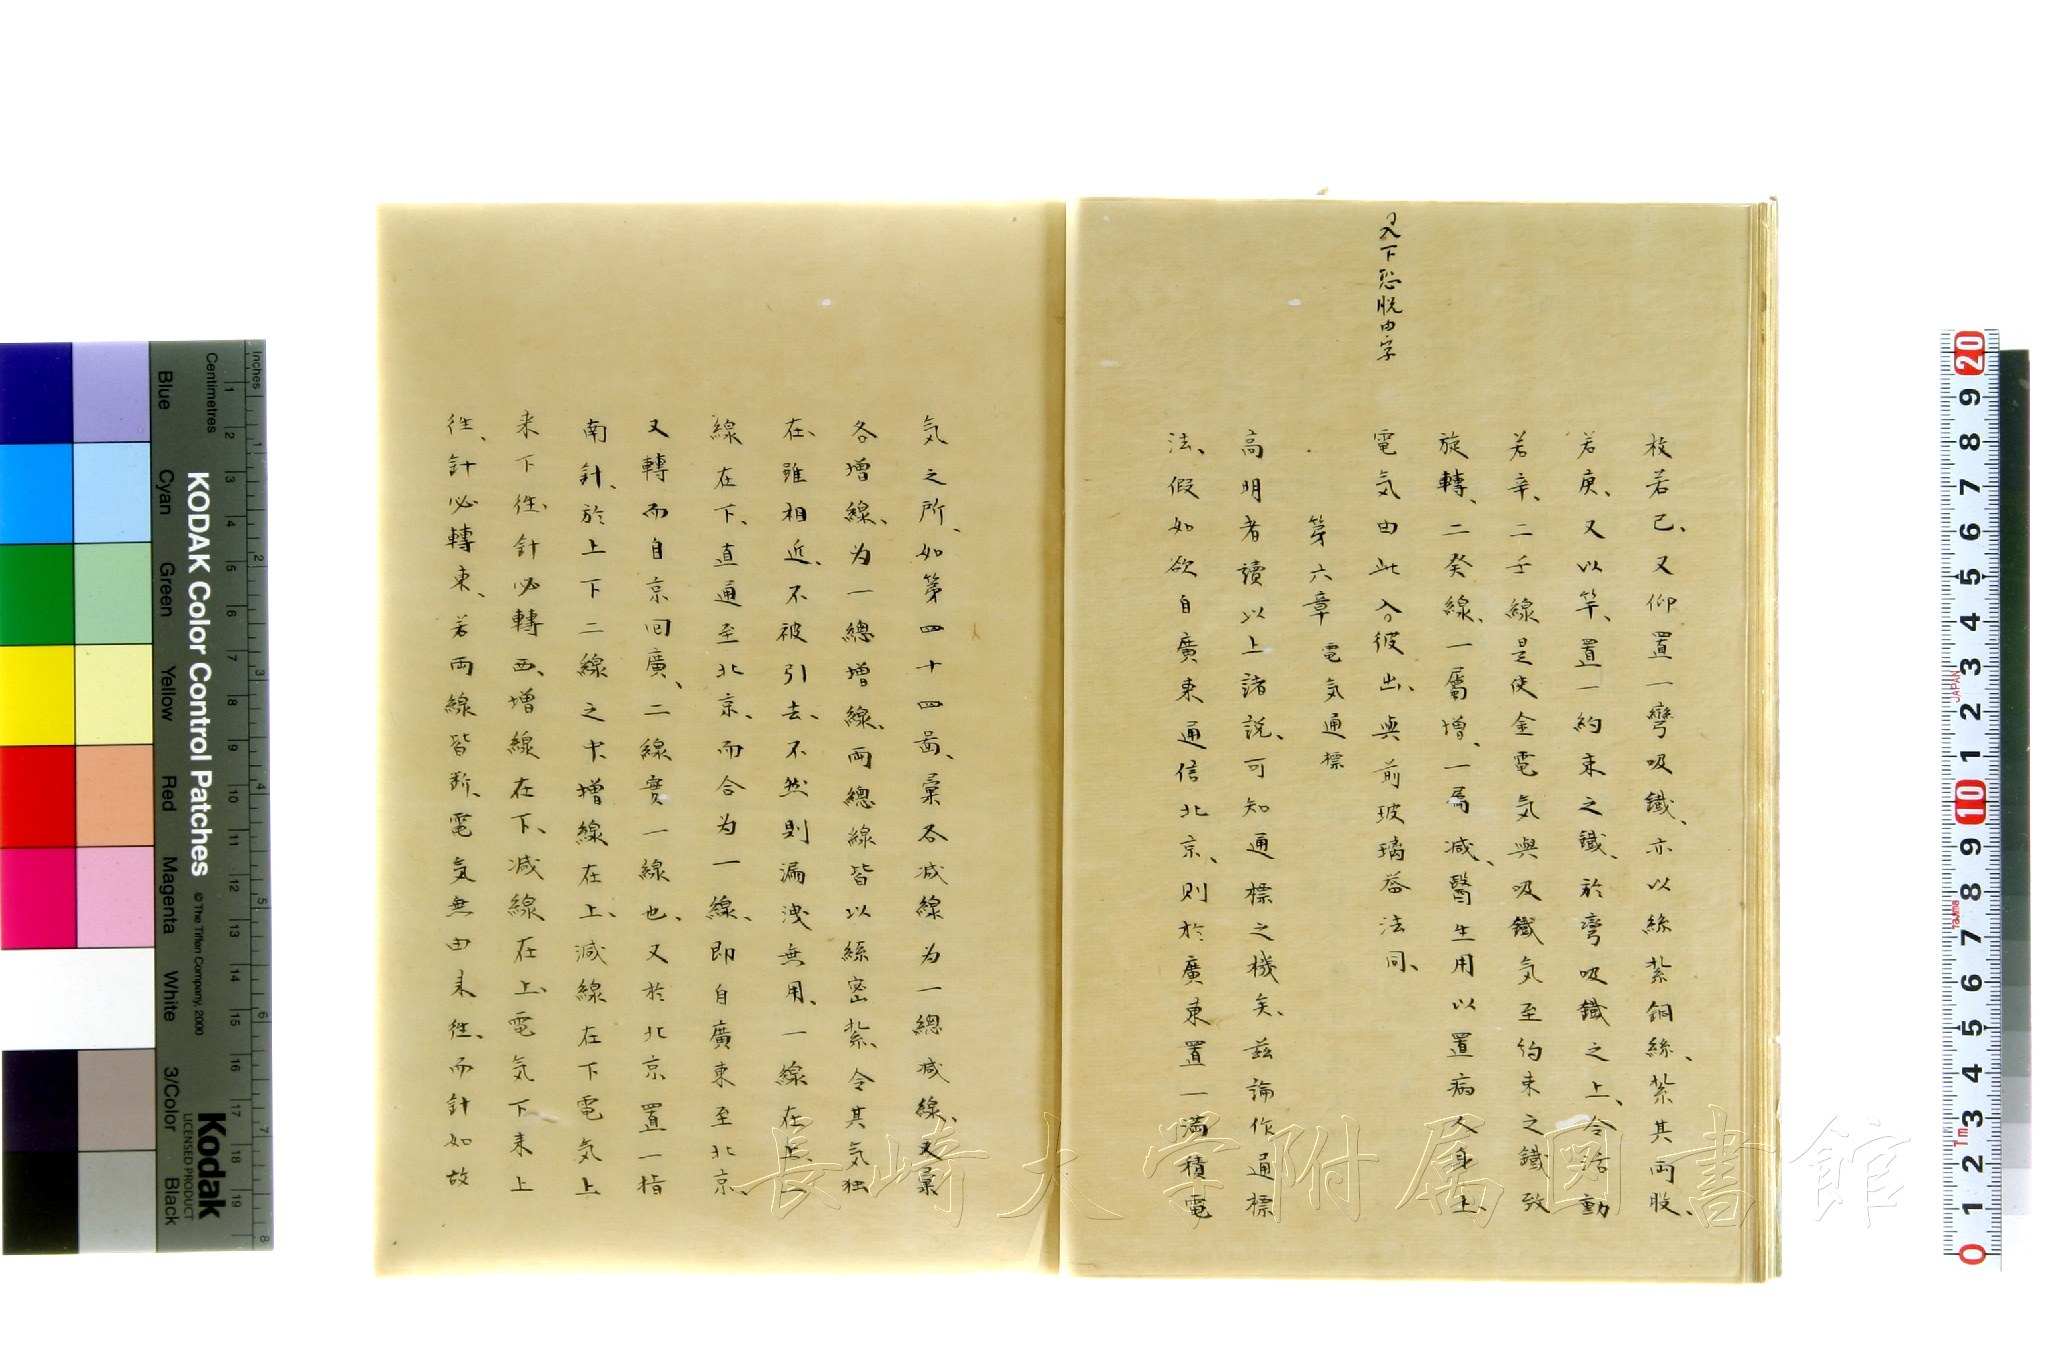 又下恐脱由字
枚若己、又仰置一彎吸鐵、亦以絲紮銅絲、紮其両股、
若庚、又以竿、置一約束之鐵、於彎吸鐵之上、令活動
若辛、二壬線是使金電気與吸鐵気至約束之鐵致
旋轉、二癸線、一屬增、一屬減、醫生用以置病人身上、
電気由此入彼出、與前玻璃巻法同、
第六章 電気通標
高明者讀以上諸説、可知通標之機矣、茲論作通標
法、假如欲自廣東通信北京、則於廣東置一満積電
気之所、如第四十四啚、彙各减線为一總减線、又彙
各增線、为一總增線、両總線皆以絲密紮、令其気独
在、雖相近、不被引去、不然則漏洩無用、一線在上、一
線在下、直通至北京、而合为一線、即自廣東至北京、
又轉而自京回廣、二線實一線也、又於北京置一指
南針、於上下二線之中、增線在上、减線在下、電気上
来下徃、針必轉西、增線在下、减線在上、電気下来上
徃、針必轉東、若両線皆断、電気無由来徃、而針如故
長崎大学附属図書館
KODAK Color Control Patches
© The Tiffen Company, 2000
Kodak
LICENSED PRODUCT
Inches
Centimetres
Blue
Cyan
Green
Yellow
Red
Magenta
White
3/Color
Black
JAPAN